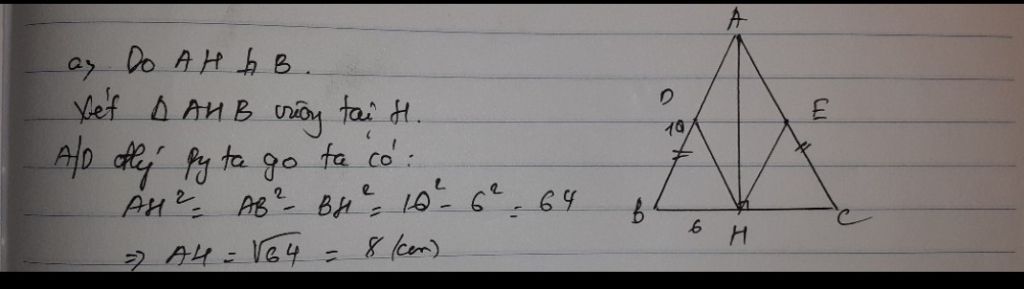 a) Do AH B.
Xét Δ AHB vuông tại H.
A/D đlý Pytago ta có:
AH² = AB² - BH² = 10² - 6² = 64
=> AH = √64 = 8 (cm)
A
D
E
10
B
6
H
C